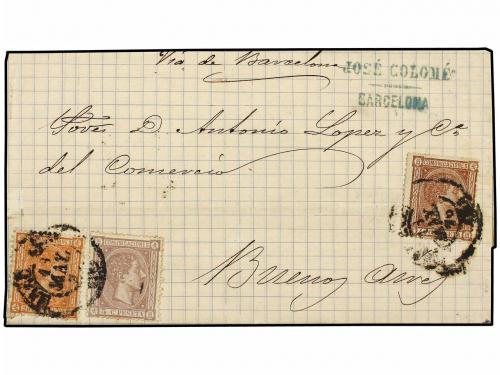 Via de Barcelona
JOSÉ COLOMÉ
BARCELONA
Sores. D. Antonio Lopez y Ca
del Comercio
Buenos Aires
COMUNICACIONES
COMUNICACIONES
5 C. PESETA
MAY